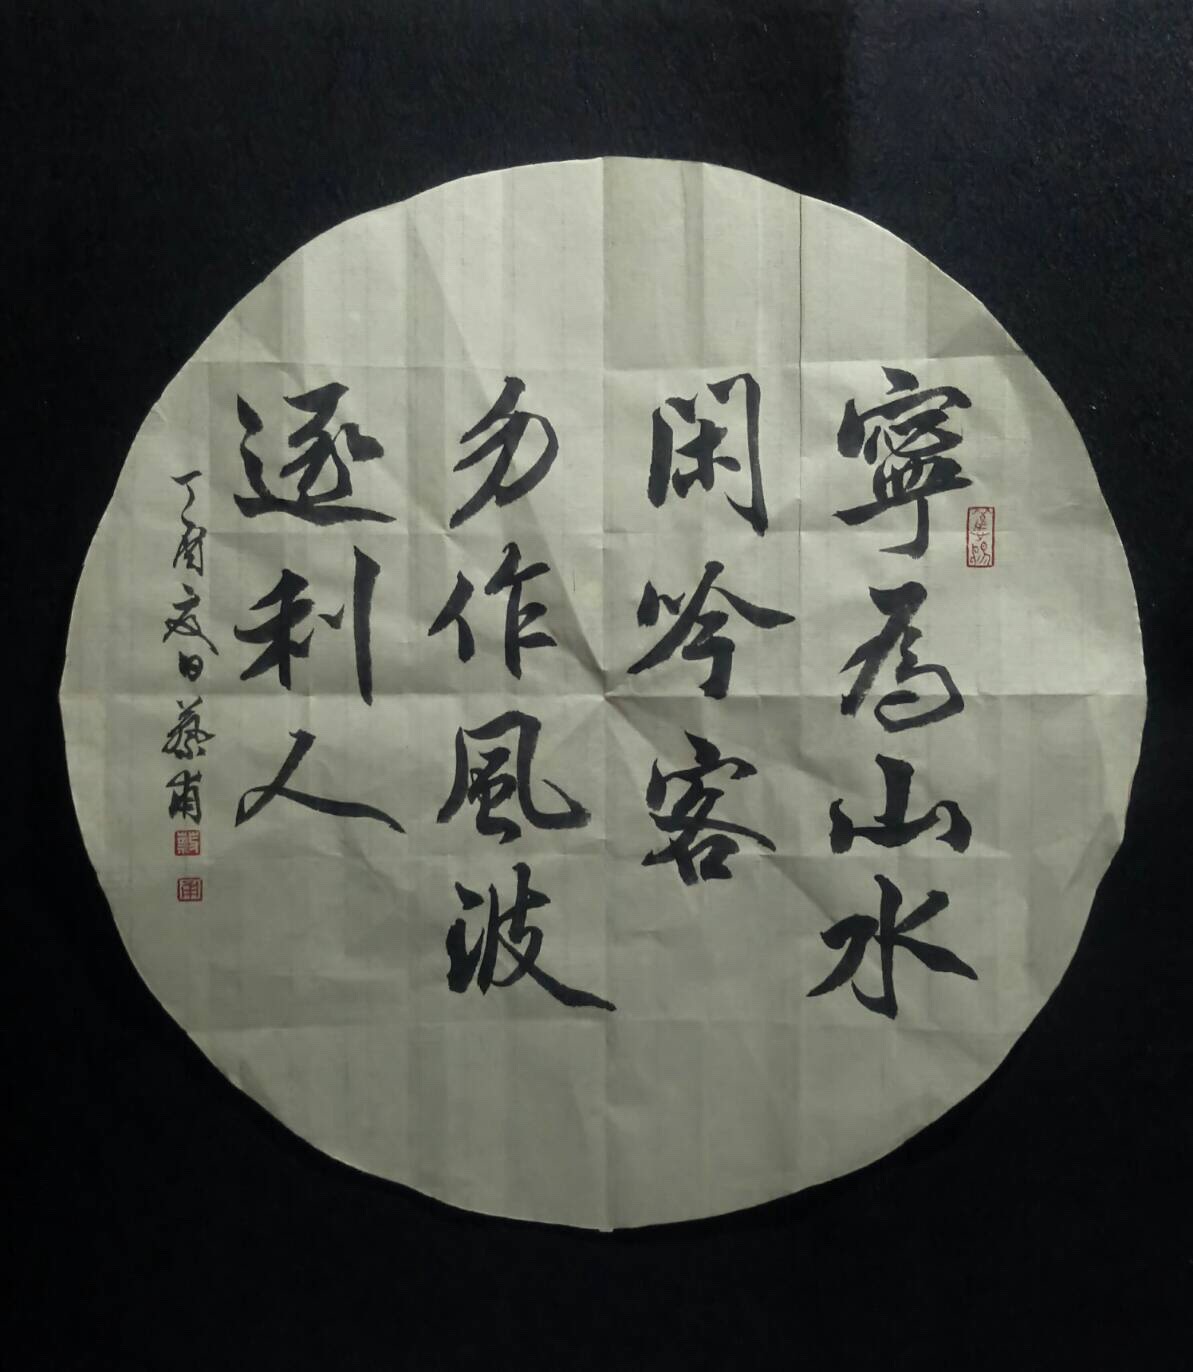 寧為山水
閑吟客
勿作風波
逐利人
丁酉夏日藝甫